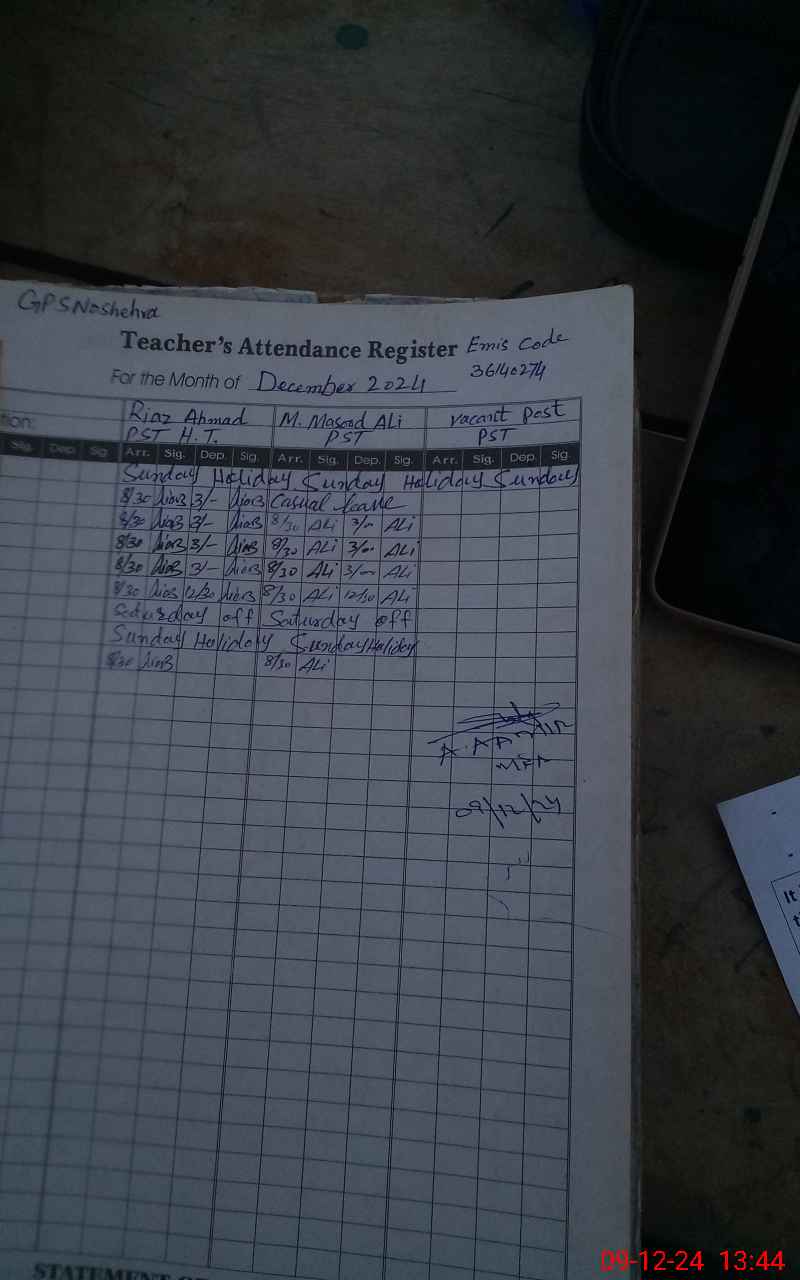 GPS Noshehra
Teacher's Attendance Register Emis Code
36140274
For the Month of December 2024
tion: Riaz Ahmad M. Masood ALi vacant post
PST H.T. PST PST
Sig. Dep. Sig Arr. Sig. Dep. Sig. Arr. Sig. Dep. Sig. Arr. Sig. Dep. Sig.
Sunday Holiday Sunday Holiday Sunday
8/30 3/- Casual leave
8/30 3/- 8/30 ALi 3/- ALi
8/30 3/- 8/30 ALi 3/- ALi
8/30 3/- 8/30 ALi 3/- ALi
8/30 12/30 8/30 ALi 12/30 ALi
Saturday off Saturday off
Sunday Holiday Sunday Holiday
8/30 8/30 ALi
09/12/24
It
STATEMENT O
09-12-24 13:44